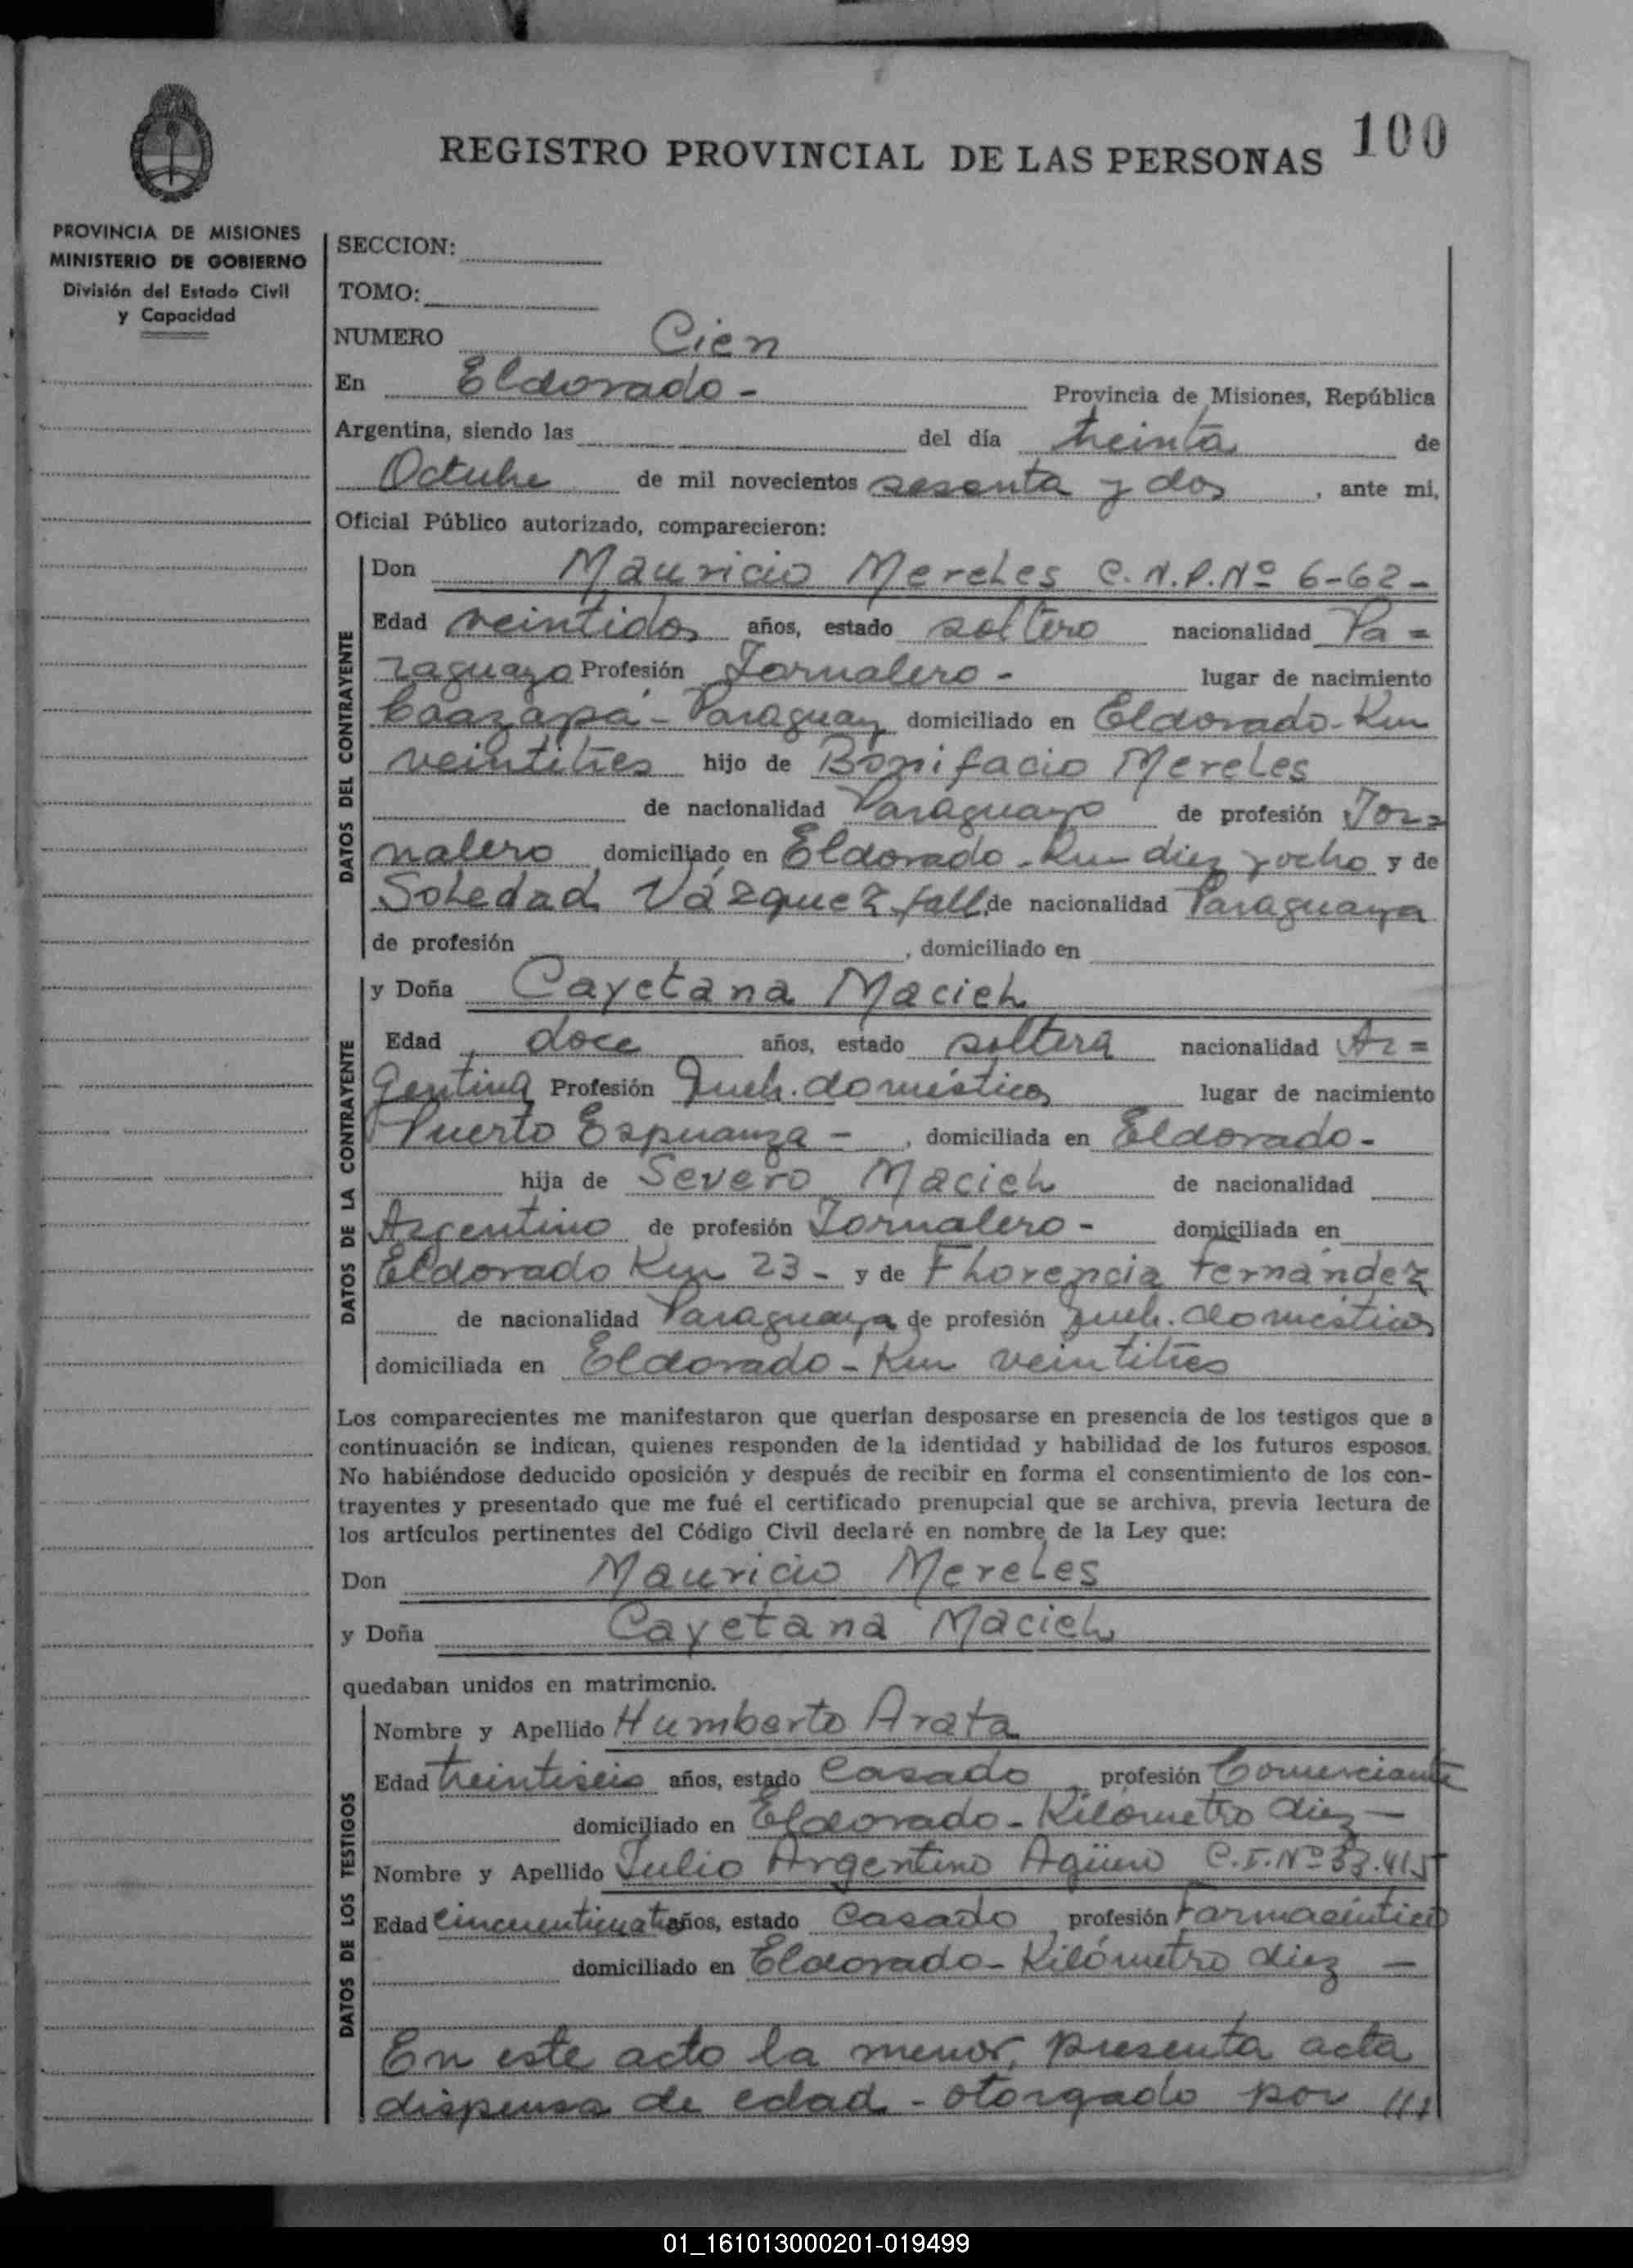 100
REGISTRO PROVINCIAL DE LAS PERSONAS
PROVINCIA DE MISIONES
MINISTERIO DE GOBIERNO
División del Estado Civil
y Capacidad
SECCION:
TOMO:
NUMERO Cien
En Eldorado - Provincia de Misiones, República
Argentina, siendo las del día treinta de
Octubre de mil novecientos sesenta y dos, ante mi,
Oficial Público autorizado, comparecieron:
DATOS DEL CONTRAYENTE
Don Mauricio Mereles C.N.P.Nº 6-62-
Edad veintidos años, estado soltero nacionalidad Pa=
raguayo Profesión Jornalero - lugar de nacimiento
Caazapá - Paraguay domiciliado en Eldorado - Km
veintitres hijo de Bonifacio Mereles
de nacionalidad Paraguayo de profesión Jor=
nalero domiciliado en Eldorado - Km diez y ocho y de
Soledad Vázquez fall. de nacionalidad Paraguaya
de profesión , domiciliado en
DATOS DE LA CONTRAYENTE
y Doña Cayetana Maciel
Edad doce años, estado soltera nacionalidad Ar=
gentina Profesión Queh. domésticos lugar de nacimiento
Puerto Esperanza - , domiciliada en Eldorado -
hija de Severo Maciel de nacionalidad
Argentino de profesión Jornalero - domiciliada en
Eldorado Km 23 - y de Florencia Fernández
de nacionalidad Paraguaya de profesión Queh. domésticos
domiciliada en Eldorado - Km veintitres
Los comparecientes me manifestaron que querían desposarse en presencia de los testigos que a
continuación se indican, quienes responden de la identidad y habilidad de los futuros esposos.
No habiéndose deducido oposición y después de recibir en forma el consentimiento de los con-
trayentes y presentado que me fué el certificado prenupcial que se archiva, previa lectura de
los artículos pertinentes del Código Civil declaré en nombre de la Ley que:
Don Mauricio Mereles
y Doña Cayetana Maciel
quedaban unidos en matrimonio.
DATOS DE LOS TESTIGOS
Nombre y Apellido Humberto Arata
Edad treintiseis años, estado Casado profesión Comerciante
domiciliado en Eldorado - Kilómetro diez -
Nombre y Apellido Julio Argentino Agüero C.I.Nº 33.415
Edad años, estado Casado profesión Farmacéutico
domiciliado en Eldorado - Kilómetro diez -
En este acto la menor, presenta acta
dispensa de edad - otorgado por ///
01_161013000201-019499